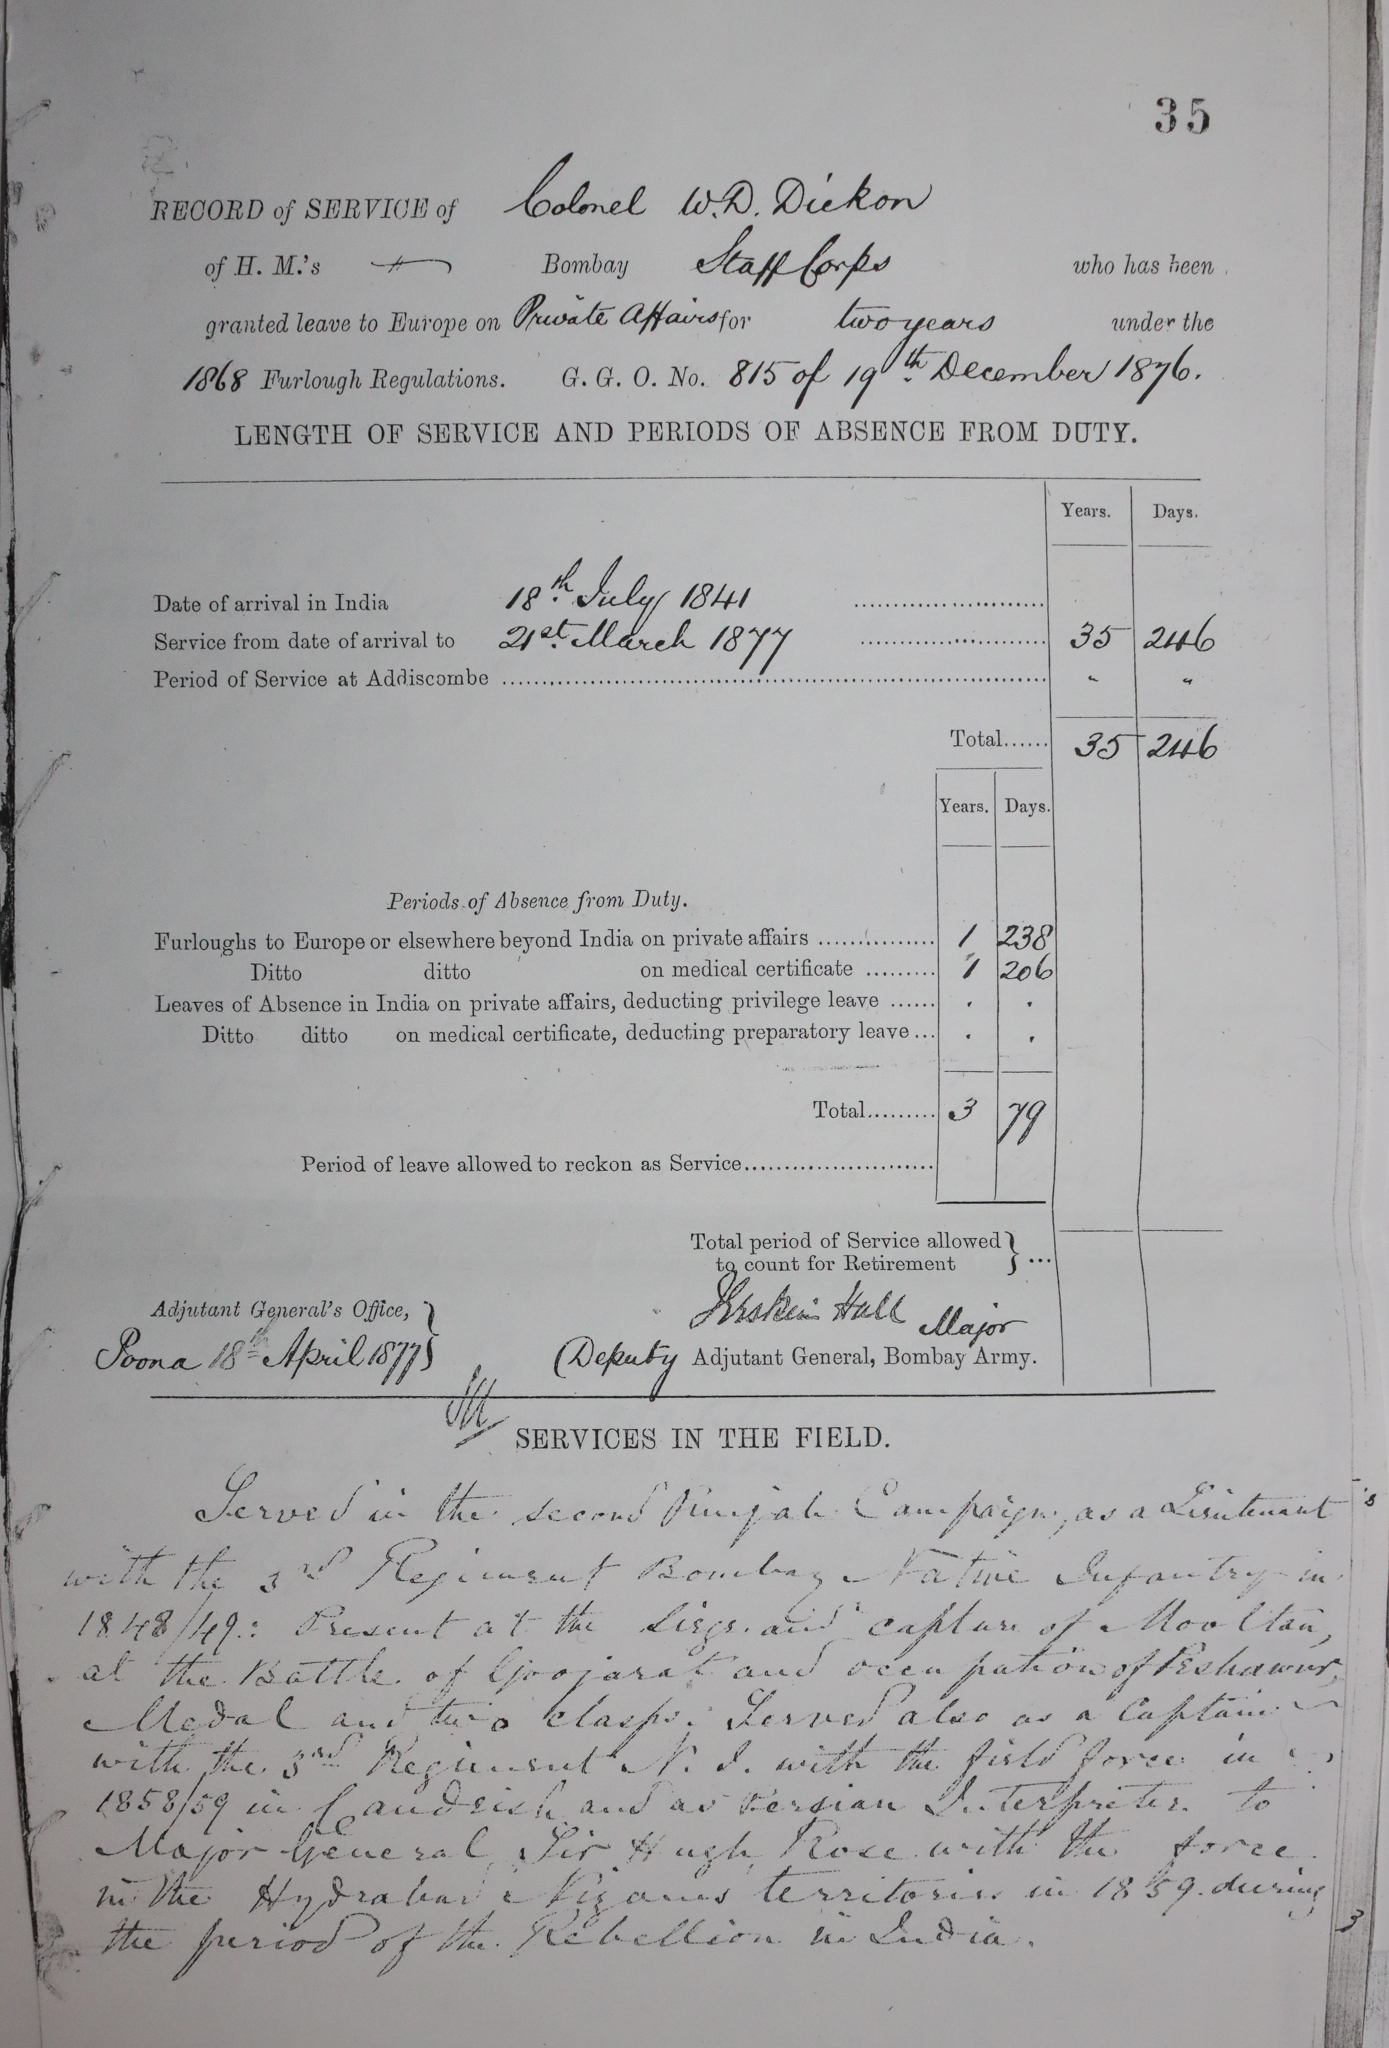 35
RECORD of SERVICE of Colonel W. D. Dickon
of H. M.'s " Bombay Staff Corps who has been
granted leave to Europe on Private Affairs for two years under the
1868 Furlough Regulations. G. G. O. No. 815 of 19th December 1876.
LENGTH OF SERVICE AND PERIODS OF ABSENCE FROM DUTY.
Years. Days.
Date of arrival in India 18th July 1841
Service from date of arrival to 21st March 1877 35 246
Period of Service at Addiscombe " "
Total...... 35 246
Years. Days.
Periods of Absence from Duty.
Furloughs to Europe or elsewhere beyond India on private affairs 1 238
Ditto ditto on medical certificate 1 206
Leaves of Absence in India on private affairs, deducting privilege leave ...... . .
Ditto ditto on medical certificate, deducting preparatory leave... . .
Total......... 3 79
Period of leave allowed to reckon as Service
Total period of Service allowed
to count for Retirement } ...
Adjutant General's Office, Erskine Hall Major
Poona 18th April 1877 (Deputy Adjutant General, Bombay Army.
SERVICES IN THE FIELD.
Served in the second Punjab Campaign, as a Lieutenant
with the 3rd Regiment Bombay Native Infantry in
1848/49: Present at the Siege and capture of Mooltan,
at the Battle of Goojarat and occupation of Peshawur,
Medal and two clasps. Served also as a Captain
with the 3rd Regiment N. I. with the field force in
1858/59 in Candeish and as Persian Interpreter to
Major General Sir Hugh Rose with the force
in the Hydrabad Nizams territories in 1859. during
the period of the Rebellion in India.